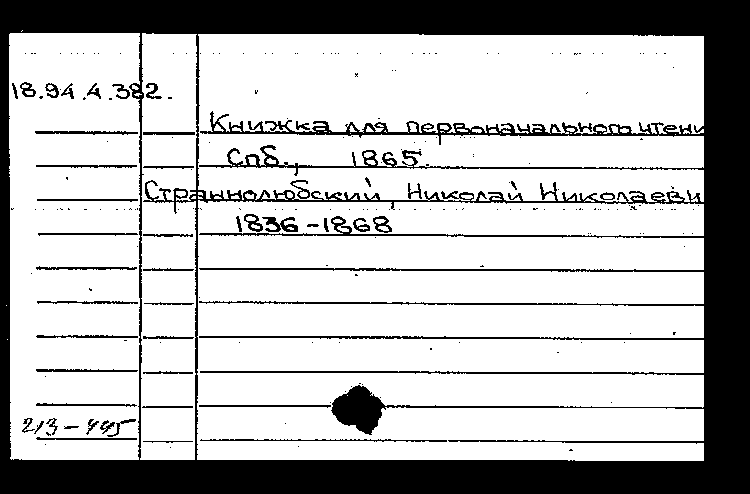 18.94.4.382.
Книжка для первоначального чтени
Спб., 1865.
Страннолюбский, Николай Николаеви
1836-1868
213-445